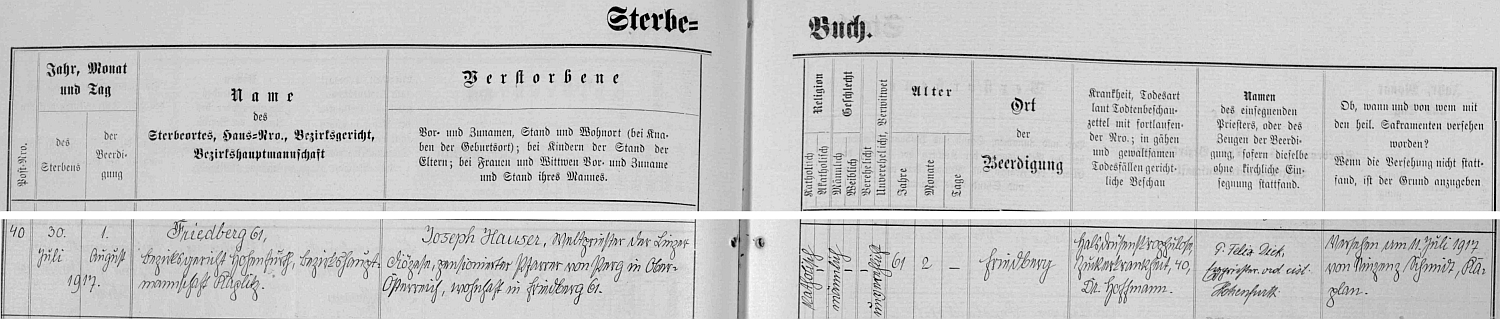 Sterbe= Buch.
Jahr, Monat
und Tag
des
Sterbens
der
Beerdi-
gung
Post-Nro.
Name
des
Sterbeortes, Haus-Nro., Bezirksgericht,
Bezirkshauptmannschaft
Verstorbene
Vor- und Zunamen, Stand und Wohnort (bei Kna-
ben der Geburtsort); bei Kindern der Stand der
Eltern; bei Frauen und Wittwen Vor- und Zuname
und Stand ihres Mannes.
Religion
Katholisch
Akatholisch
Geschlecht
Männlich
Weiblich
Verehelicht
Unverehelicht, Verwitwet
Alter
Jahre
Monate
Tage
Ort
der
Beerdigung
Krankheit, Todesart
laut Todtenbeschau-
zettel mit fortlaufen-
der Nro.; in gähen
und gewaltsamen
Todesfällen gericht-
liche Beschau
Namen
des einsegnenden
Priesters, oder des
Zeugen der Beerdi-
gung, sofern dieselbe
ohne kirchliche Ein-
segnung stattfand.
Ob, wann und von wem mit
den heil. Sakramenten versehen
worden?
Wenn die Versehung nicht statt-
fand, ist der Grund anzugeben
40
30.
Juli
1.
August
1917.
Friedberg 61,
bezirksgericht Hohenfurth, bezirkshaupt-
mannschaft Kaplitz.
Joseph Hauser, Weltpriester der Linzer
Diözese, pensionierter Pfarrer von Perg in Ober-
Österreich, wohnhaft in Friedberg 61.
katholisch
männlich
unverehelicht
61
2
—
Friedberg
Zuckerkrankheit, 40,
Dr. Hoffmann.
P. Felix
Hohenfurth
Versehen am 11. Juli 1917
von Vinzenz Schmidt, Ka-
plan.